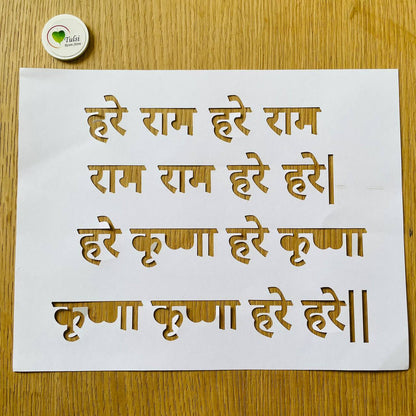 Tulsi
हरे राम हरे राम
राम राम हरे हरे|
हरे कृष्णा हरे कृष्णा
कृष्णा कृष्णा हरे हरे||